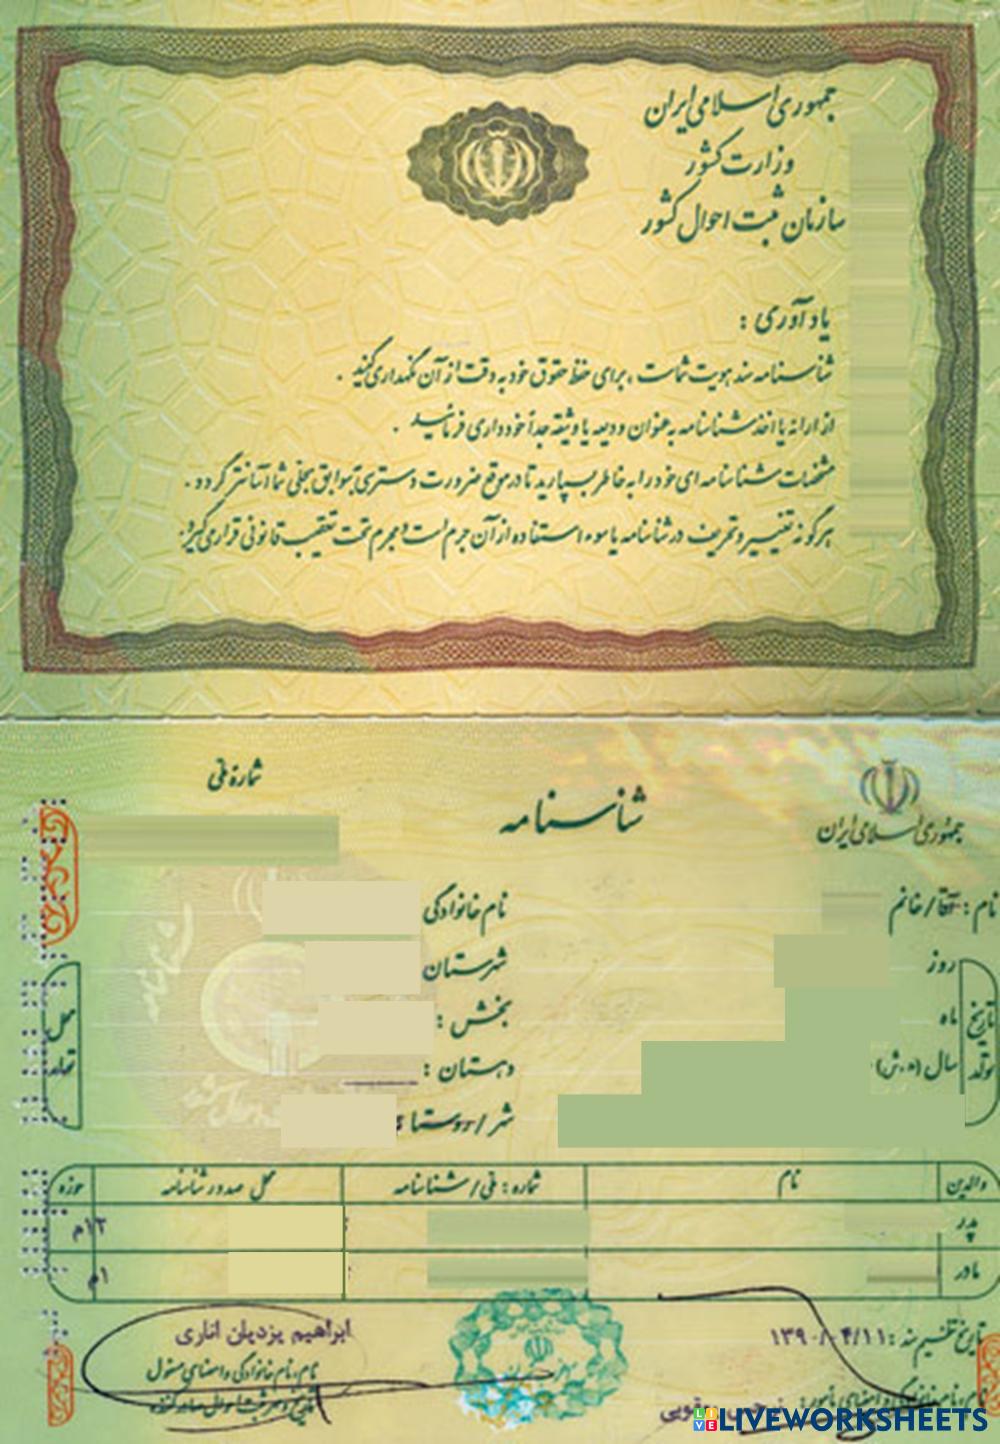 جمهوری اسلامی ایران
وزارت کشور
سازمان ثبت احوال کشور
یادآوری :
شناسنامه سند هویت شماست ، برای حفظ حقوق خود به دقت از آن نگهداری کنید .
از ارائه یا اخذ شناسنامه به عنوان ودیعه یا وثیقه جداً خودداری فرمائید .
مشخصات شناسنامه ای خود را به خاطر بسپارید تا در موقع ضرورت دسترسی به سوابق سجلی شما آسانتر گردد .
هرگونه تغییر و تحریف در شناسنامه یا سوء استفاده از آن جرم است و مجرم تحت تعقیب قانونی قرار می گیرد.
جمهوری اسلامی ایران
شناسنامه
شماره ملی
نام : آقا/خانم
نام خانوادگی
تاریخ تولد
روز
ماه
سال (ه.ش)
محل تولد
شهرستان
بخش :
دهستان :
شهر/روستا
والدین نام شماره : ملی/شناسنامه محل صدور شناسنامه حوزه
پدر ۱۲م
مادر ۱م
تاریخ تنظیم سند : ۱۳۹۰/۰۴/۱۱
ابراهیم یزدیان اناری
نام، نام خانوادگی و امضای مسئول
LIVEWORKSHEETS